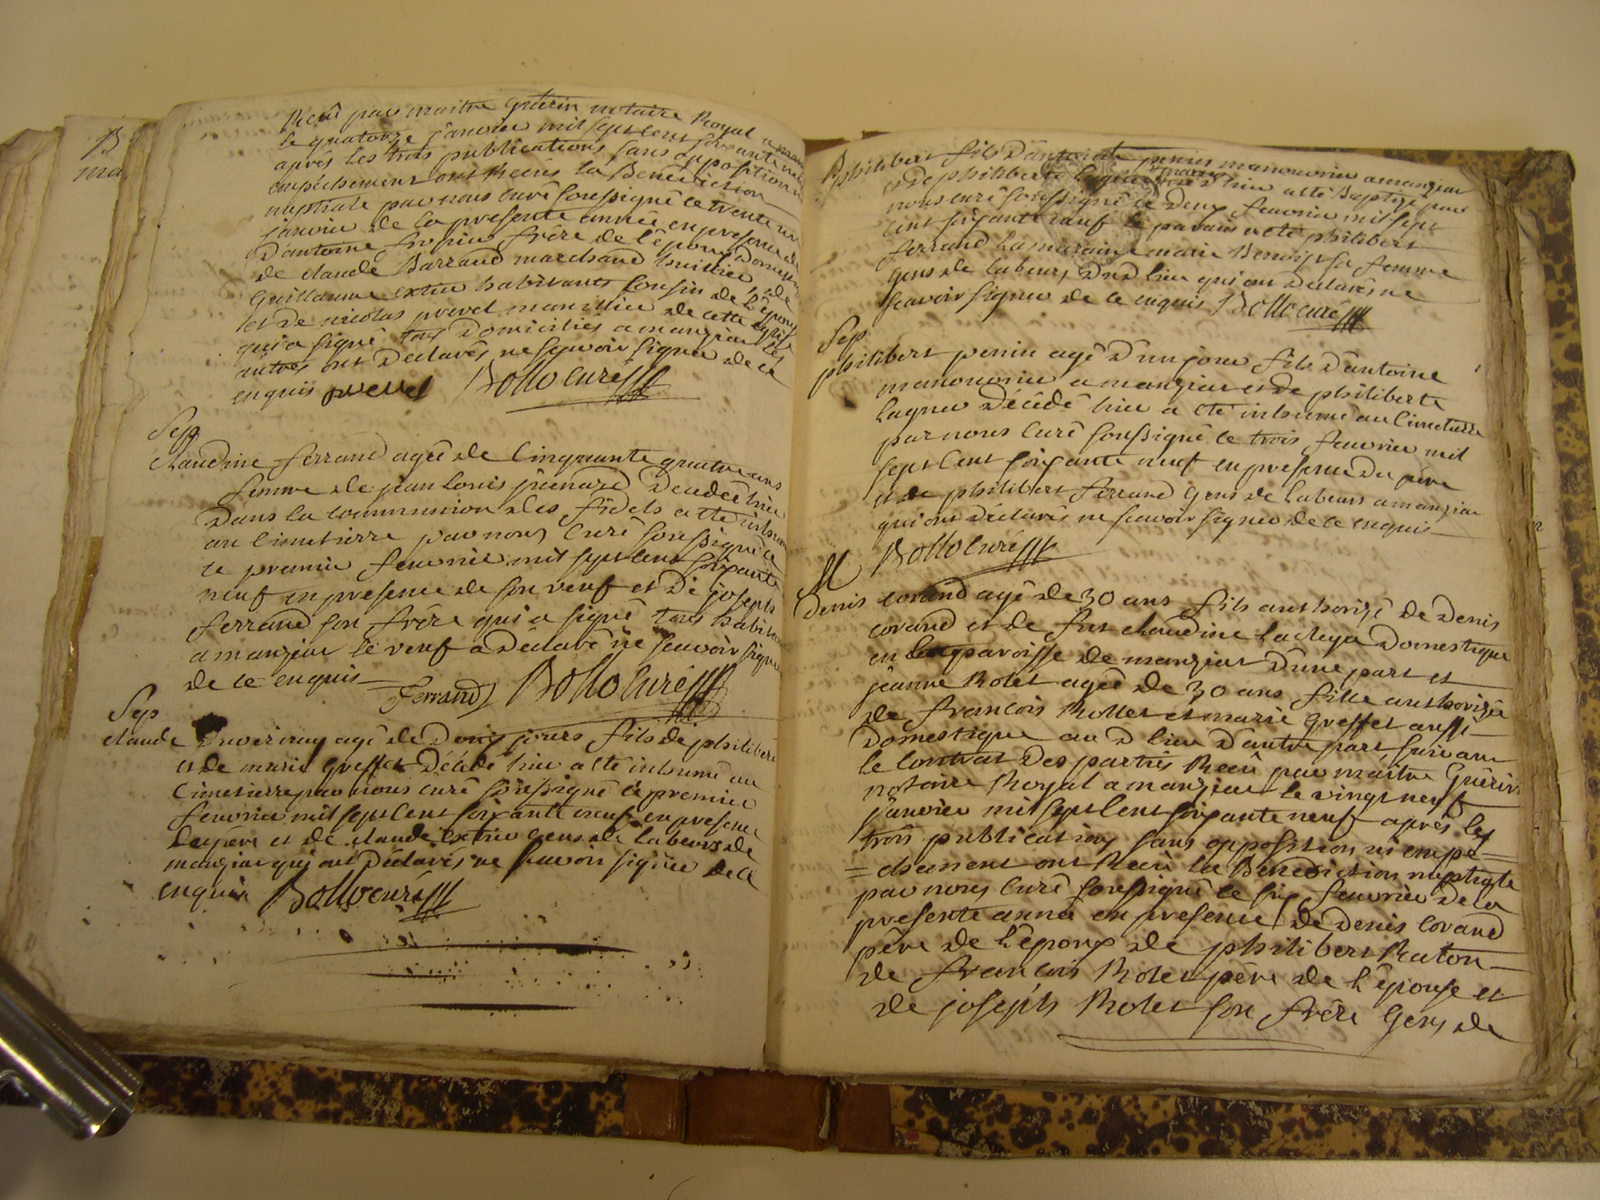 Receu par maitre guerin notaire Royal a manziat
le quatorze janvier mil sept cent soixante neuf
après les trois publications sans opposition ni
empêchement ont Receu la Benediction
nuptiale par nous curé soussigné le trente un
janvier de la presente année en presence de
d'antoine frere de l'époux Domestique
de claude Barraud marchand huillier de
guillaume extier habitants cousin de l'épouse
et de nicolas prevel manillier de cette église
qui a signé tous Domiciliés a manziat les
autres ont déclarés ne sçavoir signer de ce
enquis prevel Bollo curé
Sep
claudine ferrand agée de cinquante quatre ans
femme de jean louis décédée hier
Dans la communion des fidels a été inhumée
au cimetierre par nous curé soussigné le
le premier fevrier mil sept cent soixante
neuf en presence de son veuf et de joseph
ferrand son frère qui a signé tous habitants
a manziat le veuf a déclaré ne scavoir signer
de ce enquis Ferrand Bollo curé
Sep
claude agé de Douze jours fils de philibert
et de marie greffet décédé hier a été inhumé au
cimetierre par nous curé soussigné le premier
fevrier mil sept cent soixante neuf en presence
du père et de claude extier gens de labeurs de
manziat qui ont déclarés ne scavoir signer de ce
enquis Bollo curé
B
ma
philibert fils d'antoine perrin manouvrier a manziat
et de philiberte lagrer né hier a été Baptizé par
nous curé soussigné le deux fevrier mil sept
cent soixante neuf le parain a été philibert
ferrand la maraine marie Benoist sa femme
gens de labeurs du d lieu qui ont déclarés ne
scavoir signer de ce enquis Bollo curé
Sep
philibert perrin agé d'un jour fils d'antoine
manouvrier a manziat et de philiberte
lagrer décédé hier a été inhumé au cimetierre
par nous curé soussigné le trois fevrier mil
sept cent soixante neuf en presence du père
et de philibert ferrand gens de labeurs a manziat
qui ont déclarés ne scavoir signer de ce enquis
Bollo curé
M
Denis corand agé de 30 ans fils authorizé de Denis
corand et de fue claudine la Domestique
en paroisse de manziat d'une part et
jeanne Rolet agée de 30 ans fille authorizée
de françois Rollet et marie greffet aussi
domestique au d lieu d'autre part suivant
le contrat des partiës Receu par maitre Guerin
notaire Royal a manziat le vingt neuf
janvier mil sept cent soixante neuf après les
trois publications sans opposition ni empe=
=chement ont Receu la Benediction nuptiale
par nous curé soussigné le six fevrier de la
presente année en presence de Denis corand
père de l'époux de philibert Raton
de françois Rolet père de l'épouse et
de joseph Rolet son frère gens de